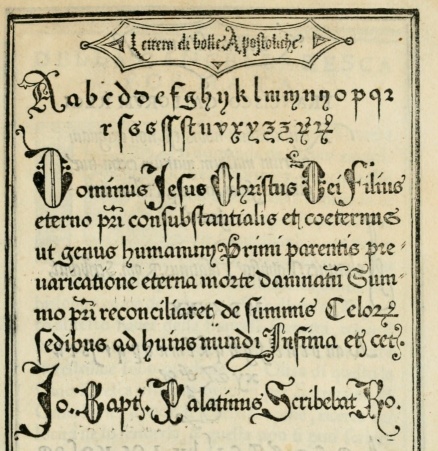 Lettera di bolle Apostoliche.
A a b c d d e f g h y k l m m n y n o p q r
r ſ s s ſſ ſt u v x y z z
Dominus Jesus Christus Dei Filius
eterno pr̄i conſubſtantialis et coeternus
ut genus humanum Primi parentis pre
uaricatione eterna morte damnatū Sum
mo pr̄i reconciliaret de ſummis Celoꝝ
ſedibus ad huius mūndi Infima et cet.
Jo. Bapt. Palatinus Scribebat Ro.